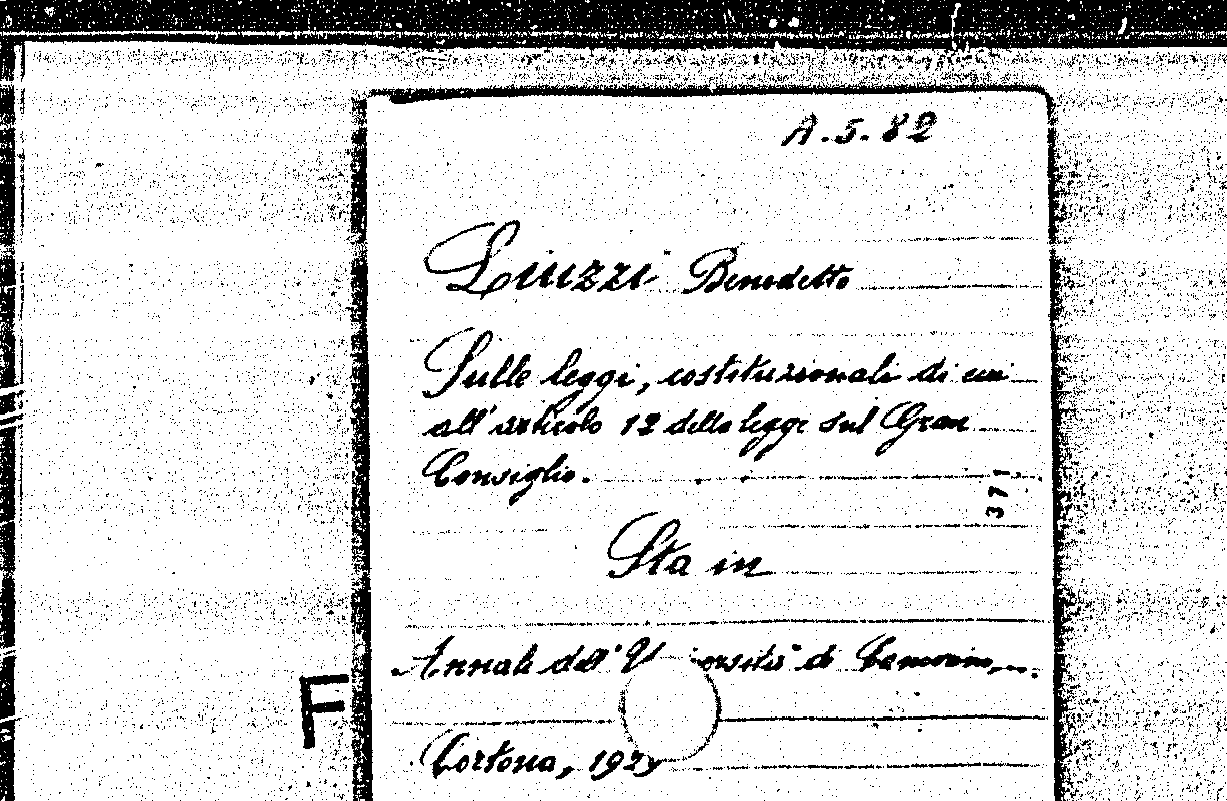 A.5.82
Liuzzi Benedetto
Sulle leggi, costituzionali di cui
all'articolo 12 della legge sul Gran
Consiglio.
371
Sta in
Annali dell'U ersità di Camerino,
F
Cortona, 192